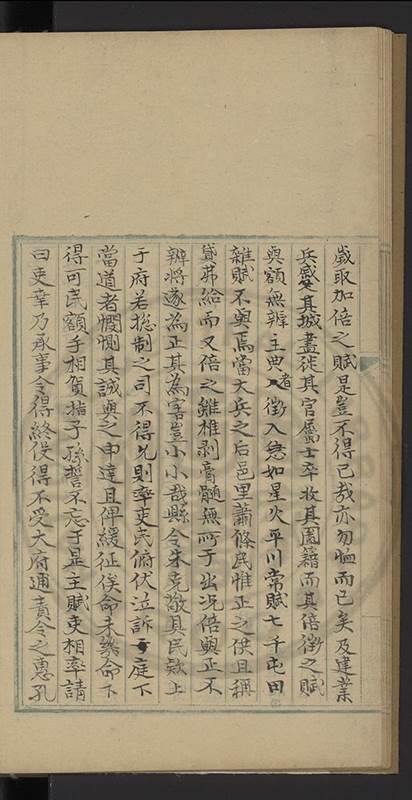 歲取加倍之賦是豈不得已哉亦勿恤而已矣及建業
兵盛其城盡徙其官屬士卒收其圖籍而其倍徵之賦
與額無辨主典者徵入急如星火平川常賦七千屯田
雜賦不與焉當大兵之后邑里蕭條民惟正之供且稱
貸弗給而又倍之雖椎剥膏髓無所于出况倍與正不
辨將遂為正其為害豈小小哉縣令朱克敬具民欵上
于府若總制之司不得允則率吏民俯伏泣訴于庭下
當道者憫惻其誠與之申達且俾緩征俟命未幾命下
得可民額手相賀措子孫誓不忘于是主賦吏相率請
曰吏等乃承事令得終役得不受大府逋責令之惠孔